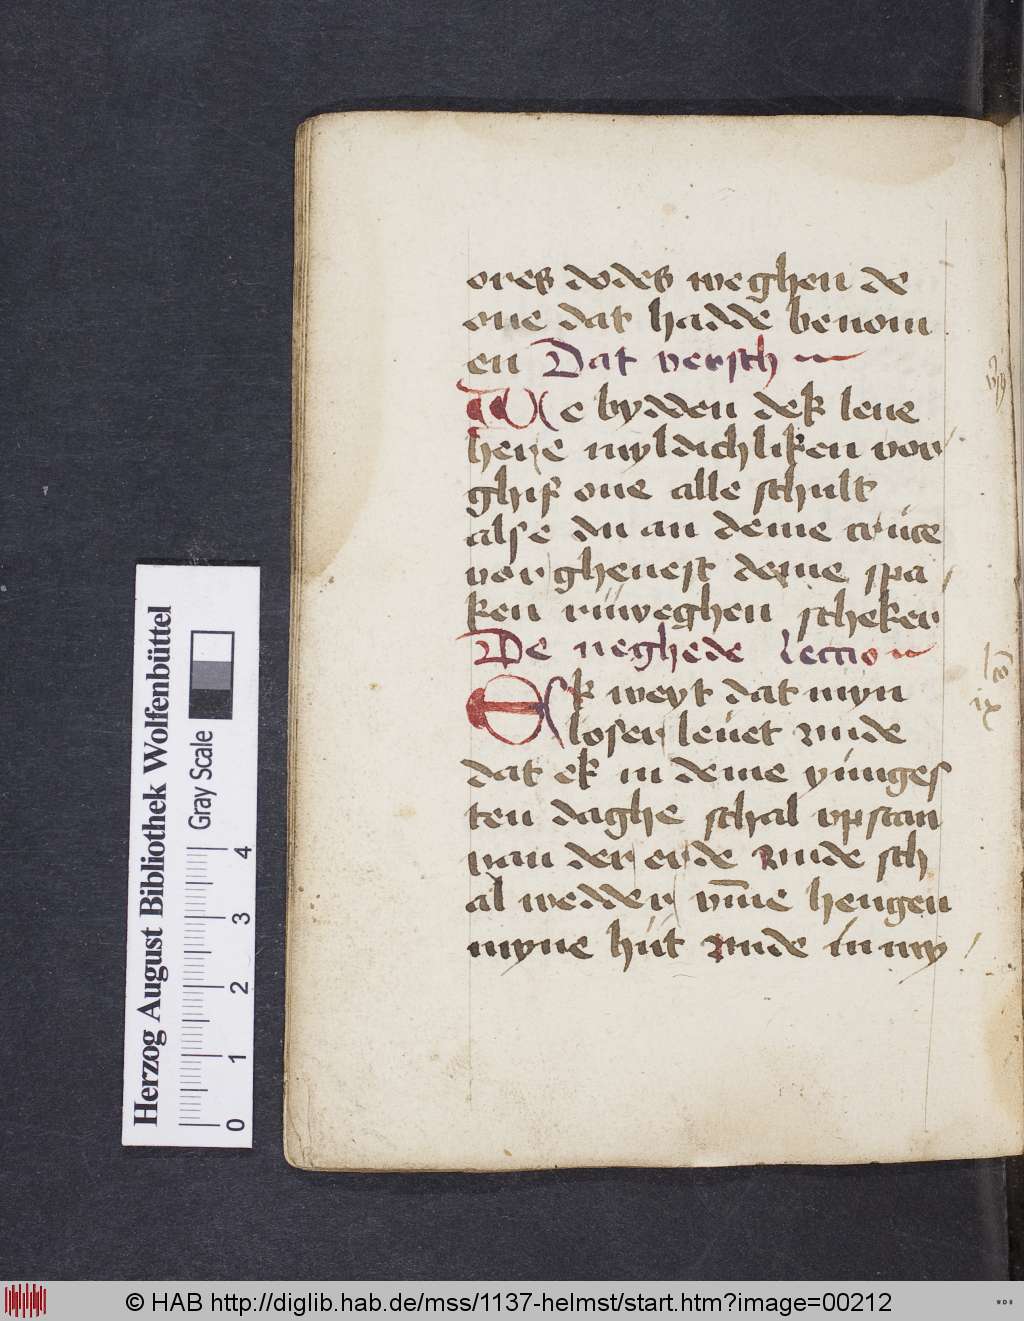 ores dodes weghen de
one dat hadde benom
en Dat versch
We bydden dek leue
here myldichliken vor
ghif one alle schult
alse du an deme cruce
vorgheuest deme spa
ken rinweghen scheker
De neghede lectio
Ek weyt dat myn
loser leuet unde
dat ek in deme yunges
ten daghe schal vpstan
van der erde unde sch
al wedder vm̄e hengen
myne hut unde in my
ix
Herzog August Bibliothek Wolfenbüttel
Gray Scale
0 1 2 3 4
© HAB http://diglib.hab.de/mss/1137-helmst/start.htm?image=00212